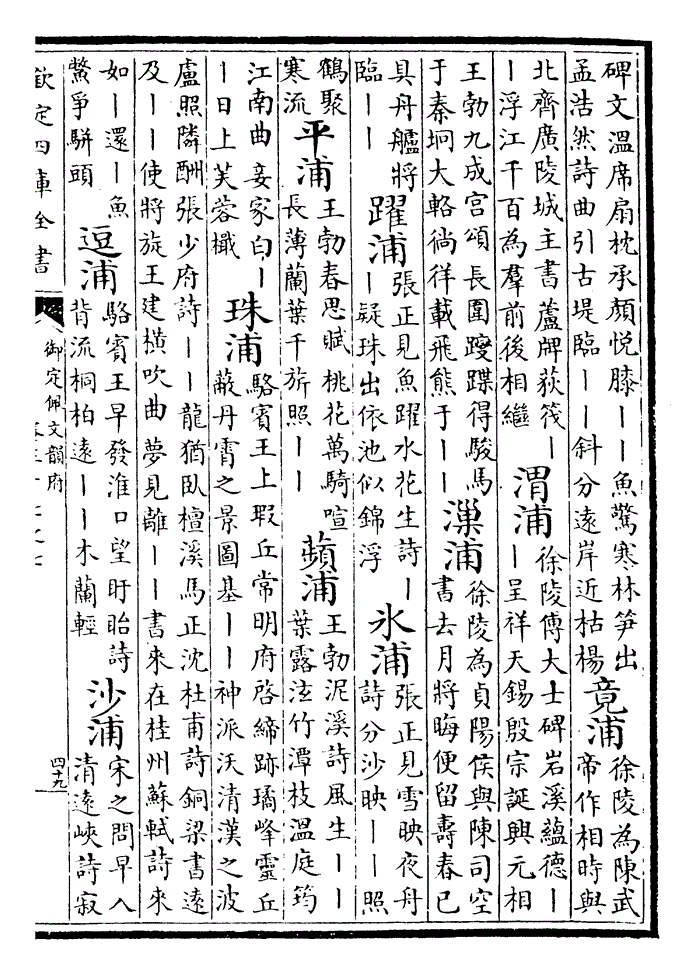 碑文溫席扇枕承顏悅膝｜｜魚驚寒林笋出
孟浩然詩曲引古堤臨｜｜斜分遠岸近枯楊
竟浦
徐陵為陳武
帝作相時與
北齊廣陵城主書蘆牌荻筏｜
｜浮江千百為羣前後相繼
渭浦
徐陵傅大士碑岩溪蘊德｜
｜呈祥天錫殷宗誕興元相
王勃九成宮頌長圍躞蹀得駿馬
于秦坰大輅徜徉載飛熊于｜｜
漅浦
徐陵為貞陽侯與陳司空
書去月將晦便留壽春已
具舟艫將
臨｜｜
躍浦
張正見魚躍水花生詩｜
｜疑珠出依池似錦浮
氷浦
張正見雪映夜舟
詩分沙映｜｜照
鶴聚
寒流
平浦
王勃春思賦桃花萬騎喧
長薄蘭葉千旂照｜｜
蘋浦
王勃泥溪詩風生｜｜
葉露泫竹潭枝溫庭筠
江南曲妾家白｜
｜日上芙蓉檝
珠浦
駱賓王上瑕丘常明府啓締跡璚峰靈丘
蔽丹霄之景圖基｜｜神派沃清漢之波
盧照隣酬張少府詩｜｜龍猶臥檀溪馬正沈杜甫詩銅梁書遠
及｜｜使將旋王建橫吹曲夢見離｜｜書來在桂州蘇軾詩來
如｜還｜魚
鱉爭駢頭
逗浦
駱賓王早發淮口望盱眙詩
背流桐柏遠｜｜木蘭輕
沙浦
宋之問早入
清遠峽詩寂
欽定四庫全書
御定佩文韻府
四十九